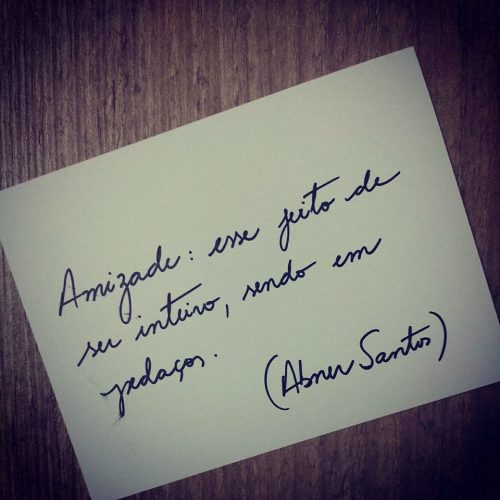 Amizade: esse jeito de
ser inteiro, sendo em
pedaços.
(Abner Santos)